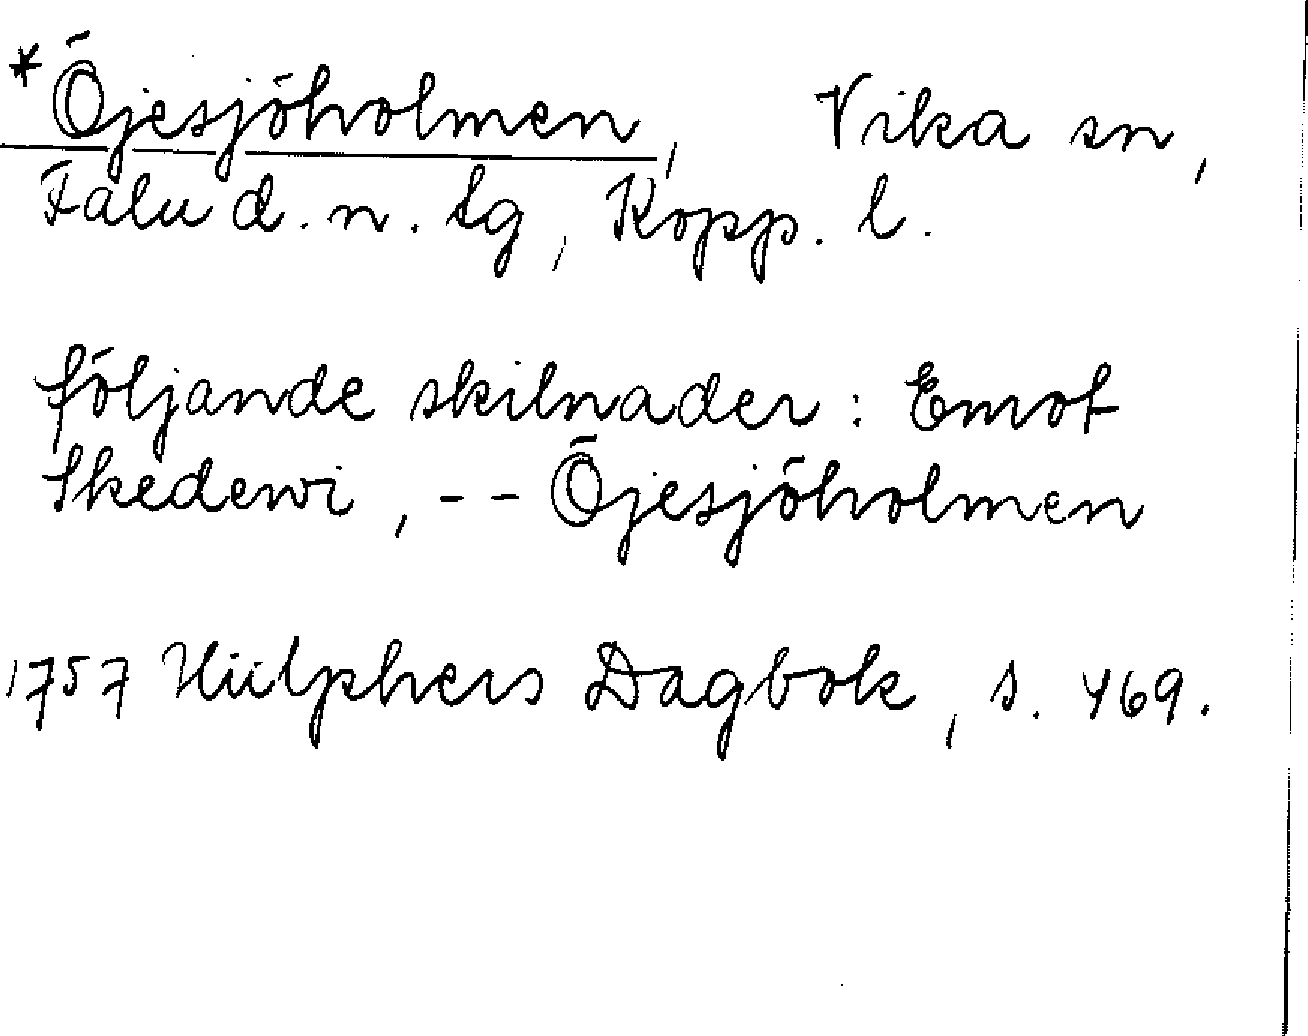 * Öjesjöholmen, Vika sn,
Falu d. n. tg, Kopp. l.
följande skilnader: Emot
Skedewi, -- Öjesjöholmen
1757 Hülphers Dagbok, s. 469.